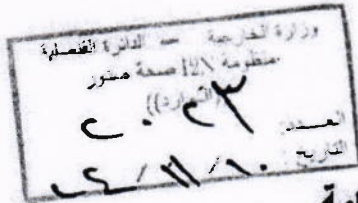 وزارة الخارجية - الدائرة القنصلية
منظومة صحة صدور
((الوارد))
العدد: ٢٠٢٣
التاريخ: ١٠ / ١١ / ٢٤